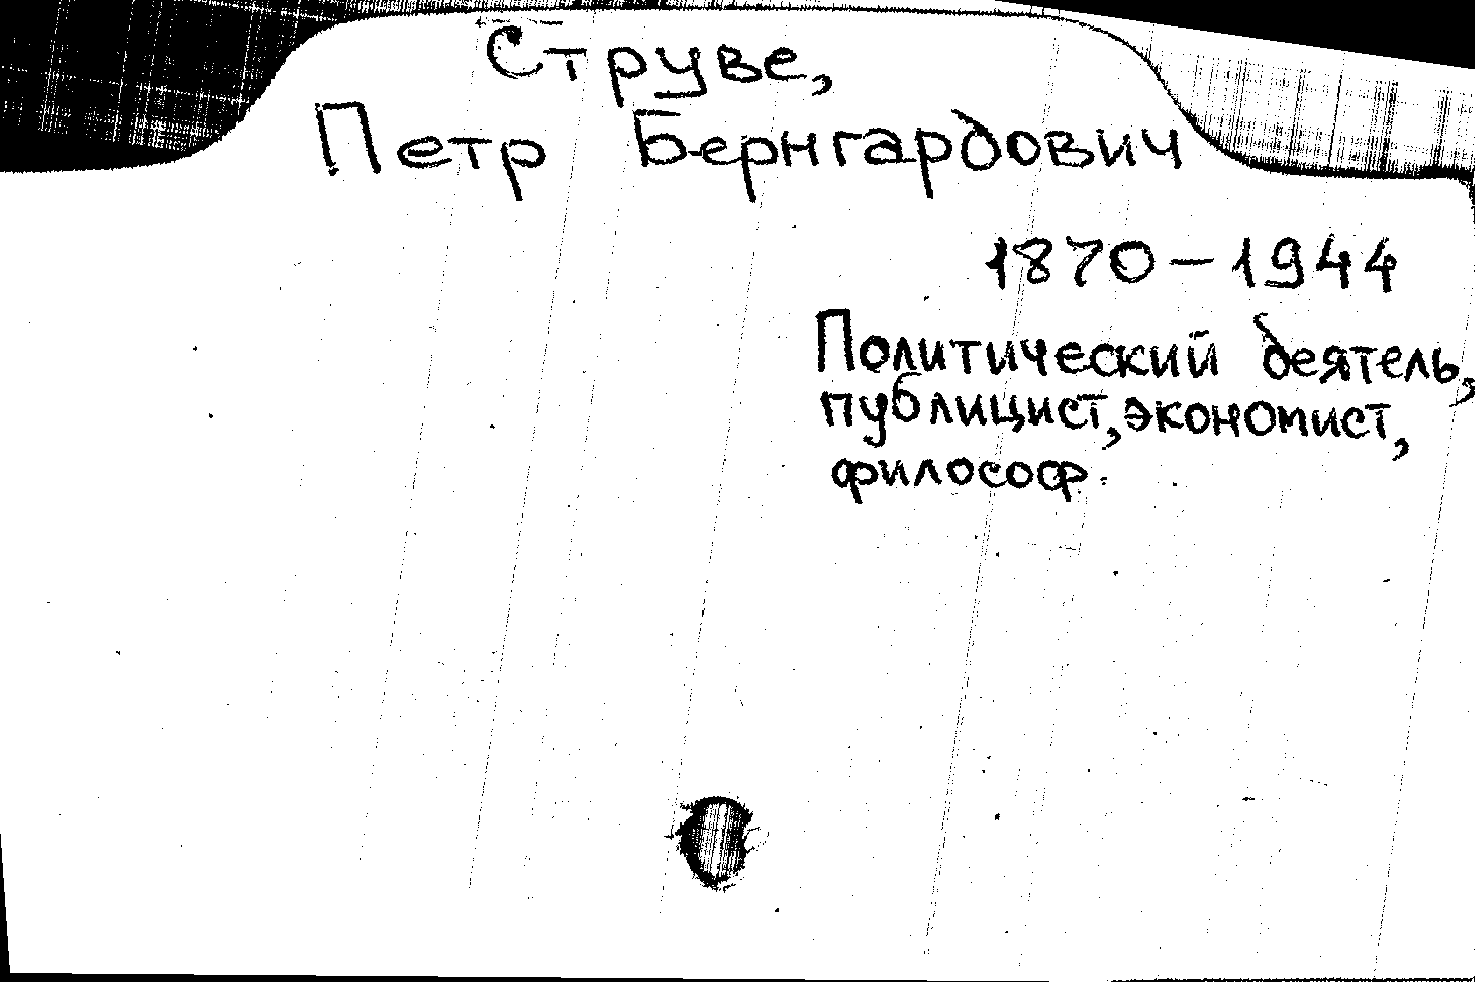 Струве,
Петр Бернгардович
1870-1944
Политический деятель,
публицист, экономист,
философ.